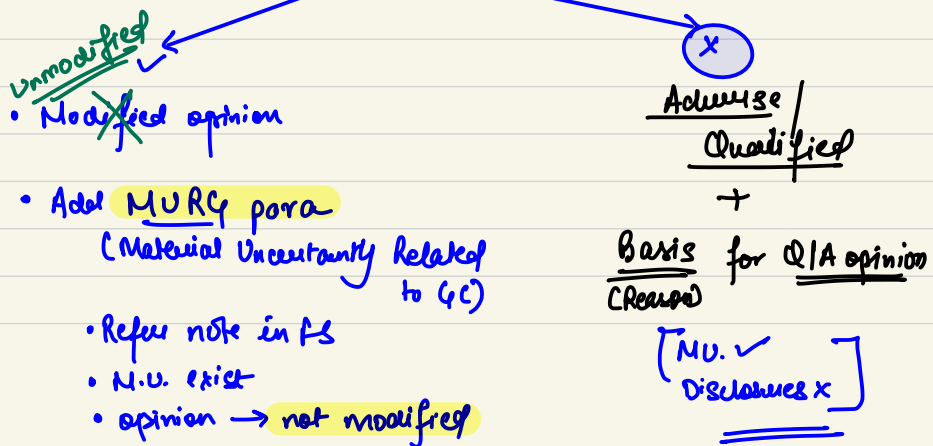 Unmodified ✓
• Modified opinion
• Add MURG para
(Material Uncertainty Related
to GC)
• Refer note in FS
• M.U. exist
• opinion → not modified
x
Adverse /
Qualified
+
Basis for Q/A opinion
(Reason)
[MU. ✓
Disclosures x]